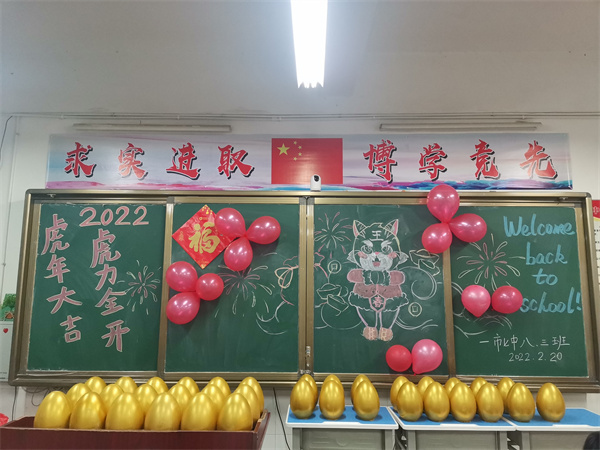 求实进取 博学竞先
2022
虎年大吉
虎力全开
福
王
Welcome
back
to
school!
一市北中八.三班
2022.2.20